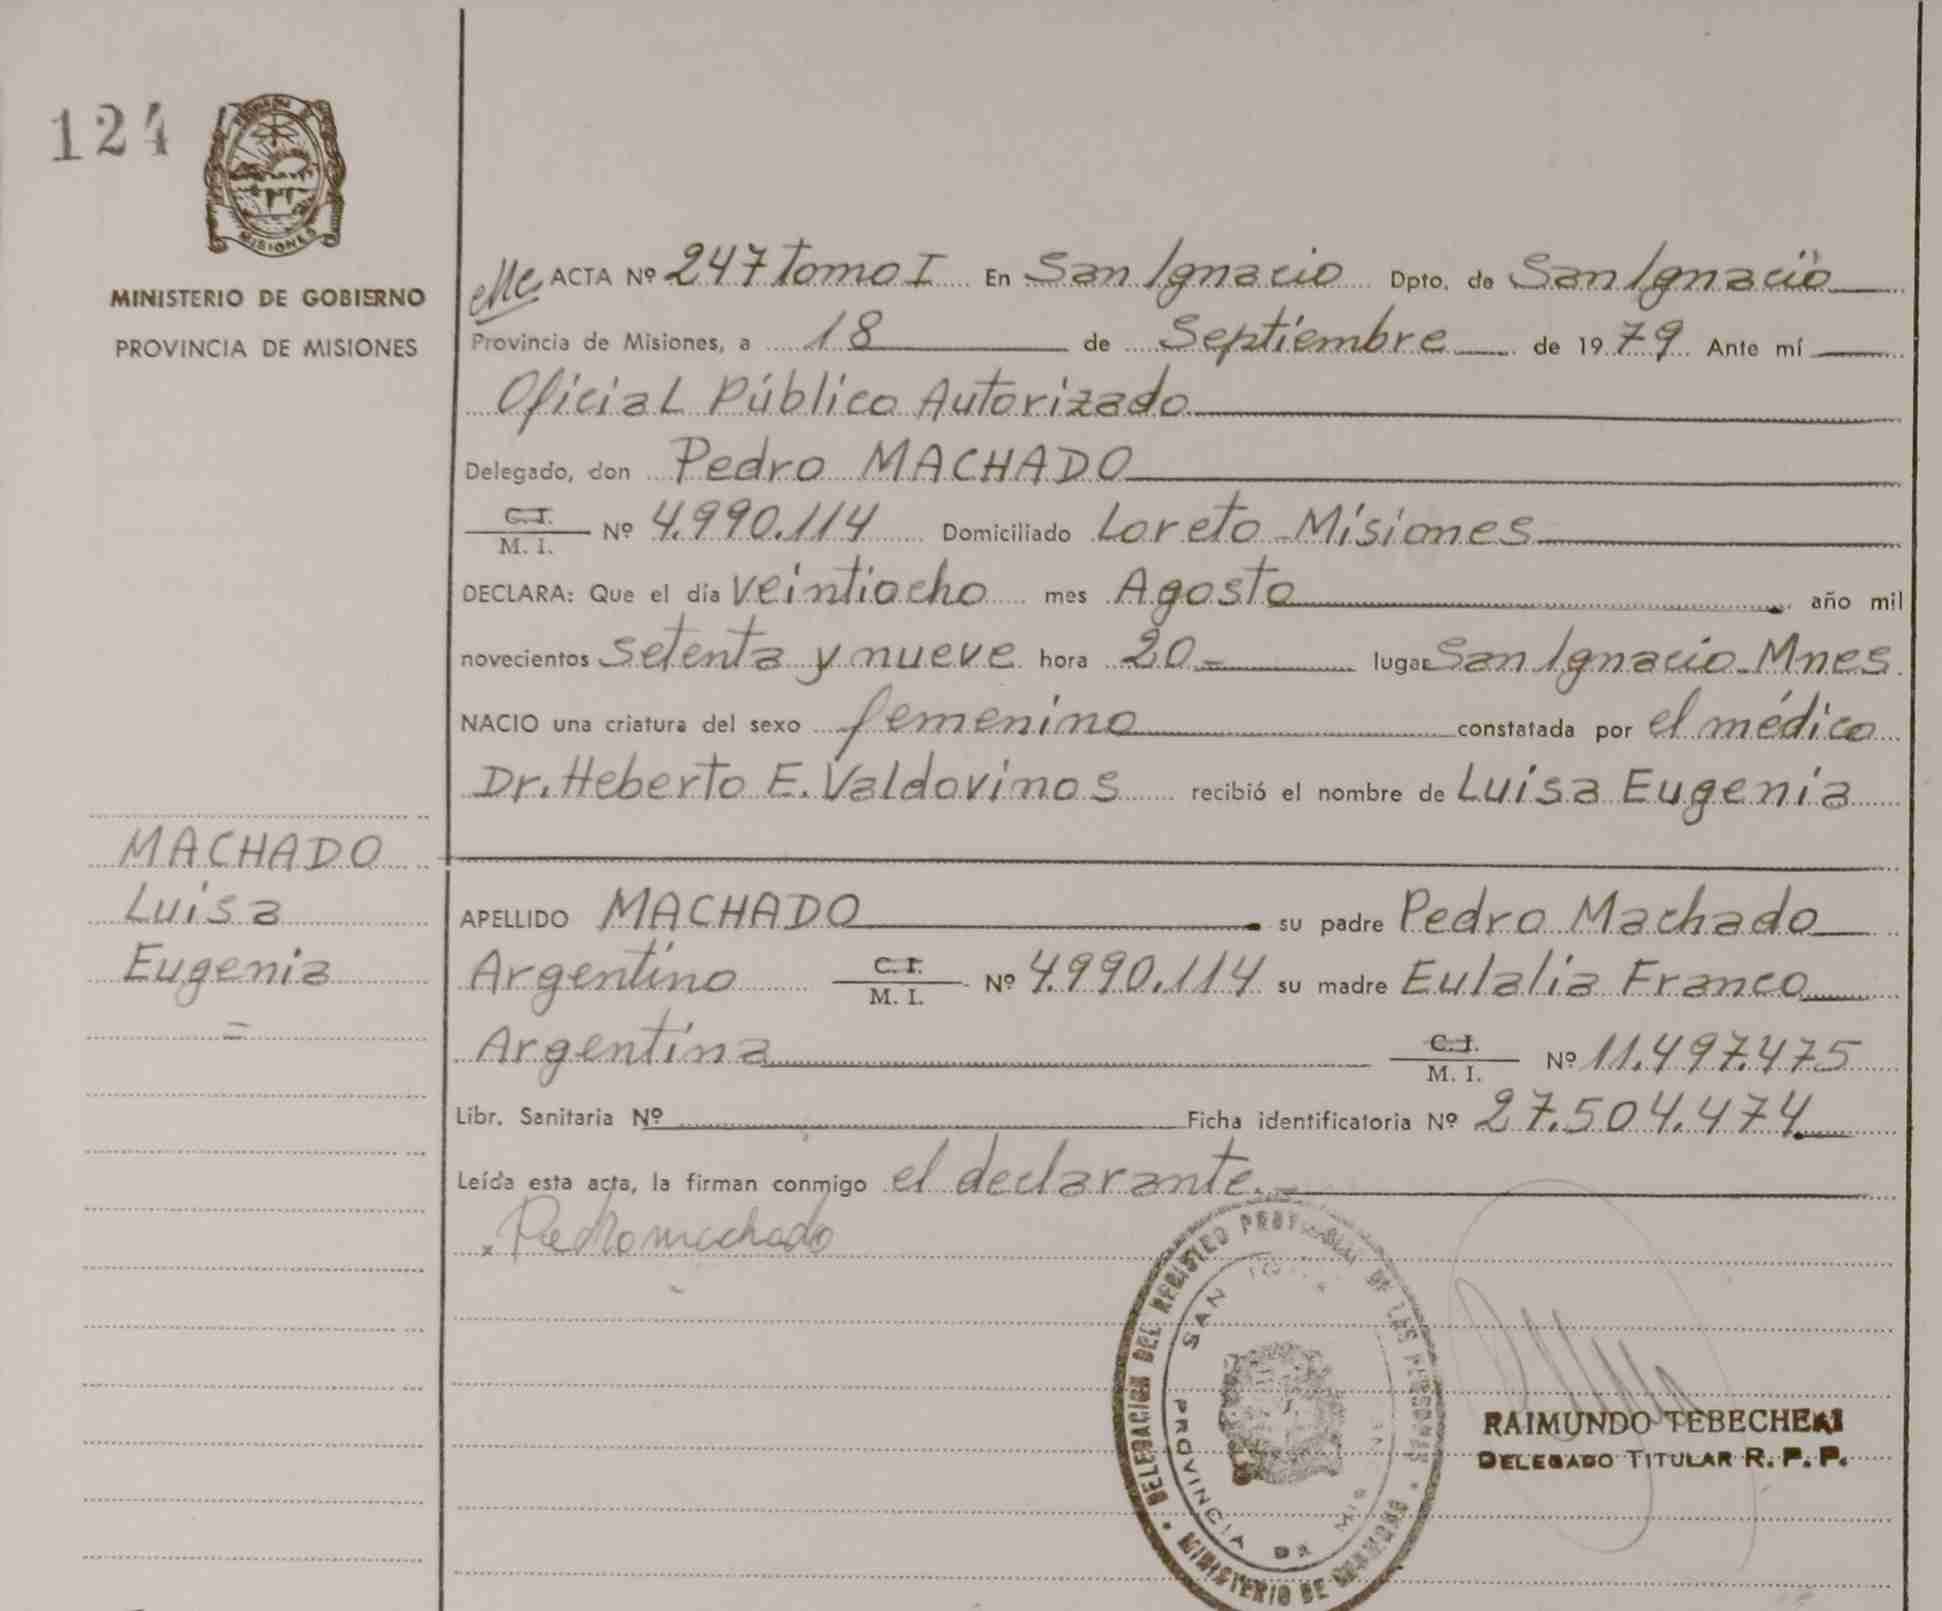 124
MISIONES
MINISTERIO DE GOBIERNO
PROVINCIA DE MISIONES
ACTA Nº 247 Tomo I En San Ignacio Dpto. de San Ignacio
Provincia de Misiones, a 18 de Septiembre de 1979 Ante mí
Oficial Público Autorizado
Delegado, don Pedro MACHADO
C.I.
M. I. Nº 4.990.114 Domiciliado Loreto - Misiones
DECLARA: Que el día veintiocho mes Agosto año mil
novecientos setenta y nueve hora 20- lugar San Ignacio - Mnes
NACIO una criatura del sexo femenino constatada por el médico
Dr. Heberto E. Valdovinos recibió el nombre de Luisa Eugenia
MACHADO
Luisa
Eugenia
=
APELLIDO MACHADO su padre Pedro Machado
Argentino C.I. M. I. Nº 4.990.114 su madre Eulalia Franco
Argentina C.I. M. I. Nº 11.497.475
Libr. Sanitaria Nº Ficha identificatoria Nº 27.504.474
Leída esta acta, la firman conmigo el declarante.
x Pedro machado
DELEGACION DEL REGISTRO PROVINCIAL DE LAS PERSONAS
SAN
PROVINCIA DE MIS
MINISTERIO DE
RAIMUNDO TEBECHERI
DELEGADO TITULAR R. P. P.